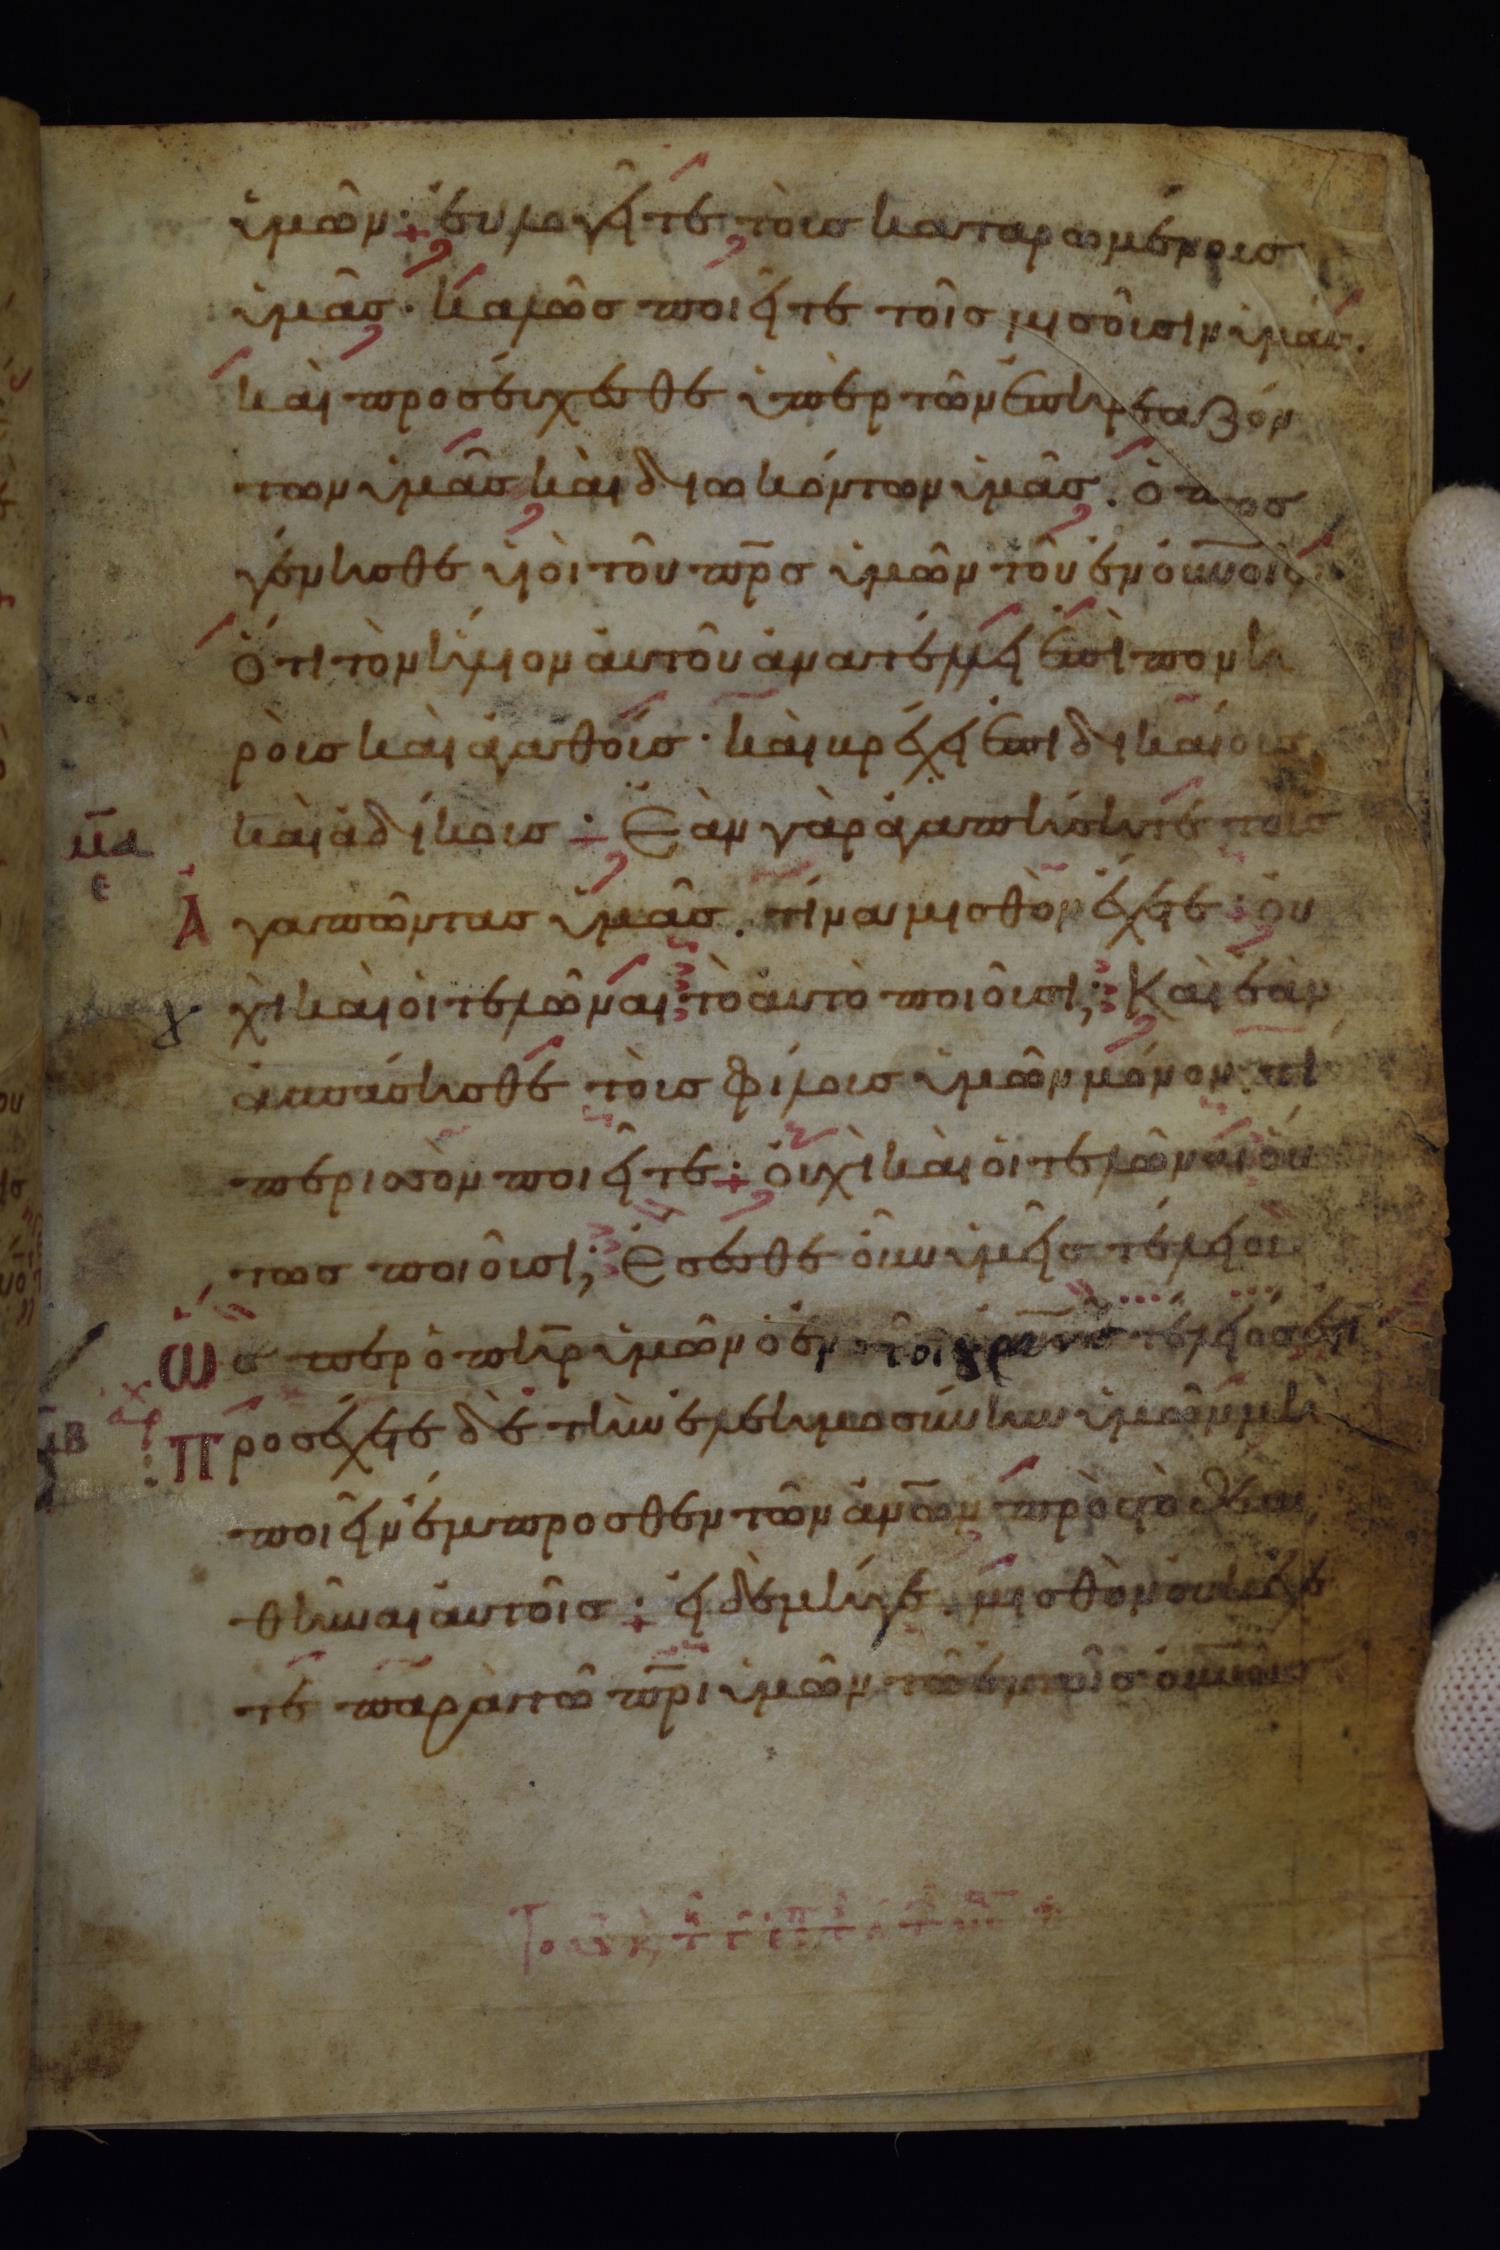 ὑμῶν· εὐλογεῖτε τοῖς καταρωμένοις
ὑμᾶς· καλῶς ποιεῖτε τοῖς μισοῦσιν ὑμᾶς.
καὶ προσεύχεσθε ὑπὲρ τῶν ἐπηρεαζόν
των ὑμᾶς καὶ διωκόντων ὑμᾶς. ὅπως
γένησθε υἱοὶ τοῦ πρ̅σ ὑμῶν τοῦ ἐν οὐνοῖς
ὅτι τὸν ἥλιον αὐτοῦ ἀνατέλλει ἐπὶ πονη
ροὺς καὶ ἀγαθούς· καὶ βρέχει ἐπὶ δικαίους
καὶ ἀδίκους : Ἐὰν γὰρ ἀγαπήσητε τοὺς
μα
ε
Ἀ
γαπῶντας ὑμᾶς. τίνα μισθὸν ἔχετε· οὐ
χὶ καὶ οἱ τελῶναι τὸ αὐτὸ ποιοῦσι; Καὶ ἐὰν
ἀσπάσησθε τοὺς φίλους ὑμῶν μόνον τί
περισσὸν ποιεῖτε· οὐχὶ καὶ οἱ τελῶναι οὕ
τως ποιοῦσι; Ἔσεσθε οὖν ὑμεῖς τέλειοι
ὥσπερ ὁ πη̅ρ ὑμῶν ὁ ἐν τοῖς τέλειός ἐστι
μβ
Προσέχετε δὲ τὴν ἐλεημοσύνην ὑμῶν μὴ
ποιεῖν ἔμπροσθεν τῶν ἀνων πρὸς τὸ θεα
θῆναι αὐτοῖς : εἰ δὲ μήγε μισθὸν οὐκ ἔχε
τε παρὰ τῶ πρ̅ι ὑμῶν τῶ ἐν τοῖς οὐνοῖς